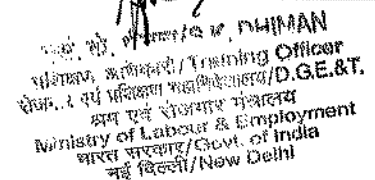 DHIMAN
प्रशिक्षण अधिकारी/Training Officer
महानिदेशालय/D.G.E.&T.
श्रम एवं रोजगार मंत्रालय
Ministry of Labour & Employment
भारत सरकार/Govt. of India
नई दिल्ली/New Delhi